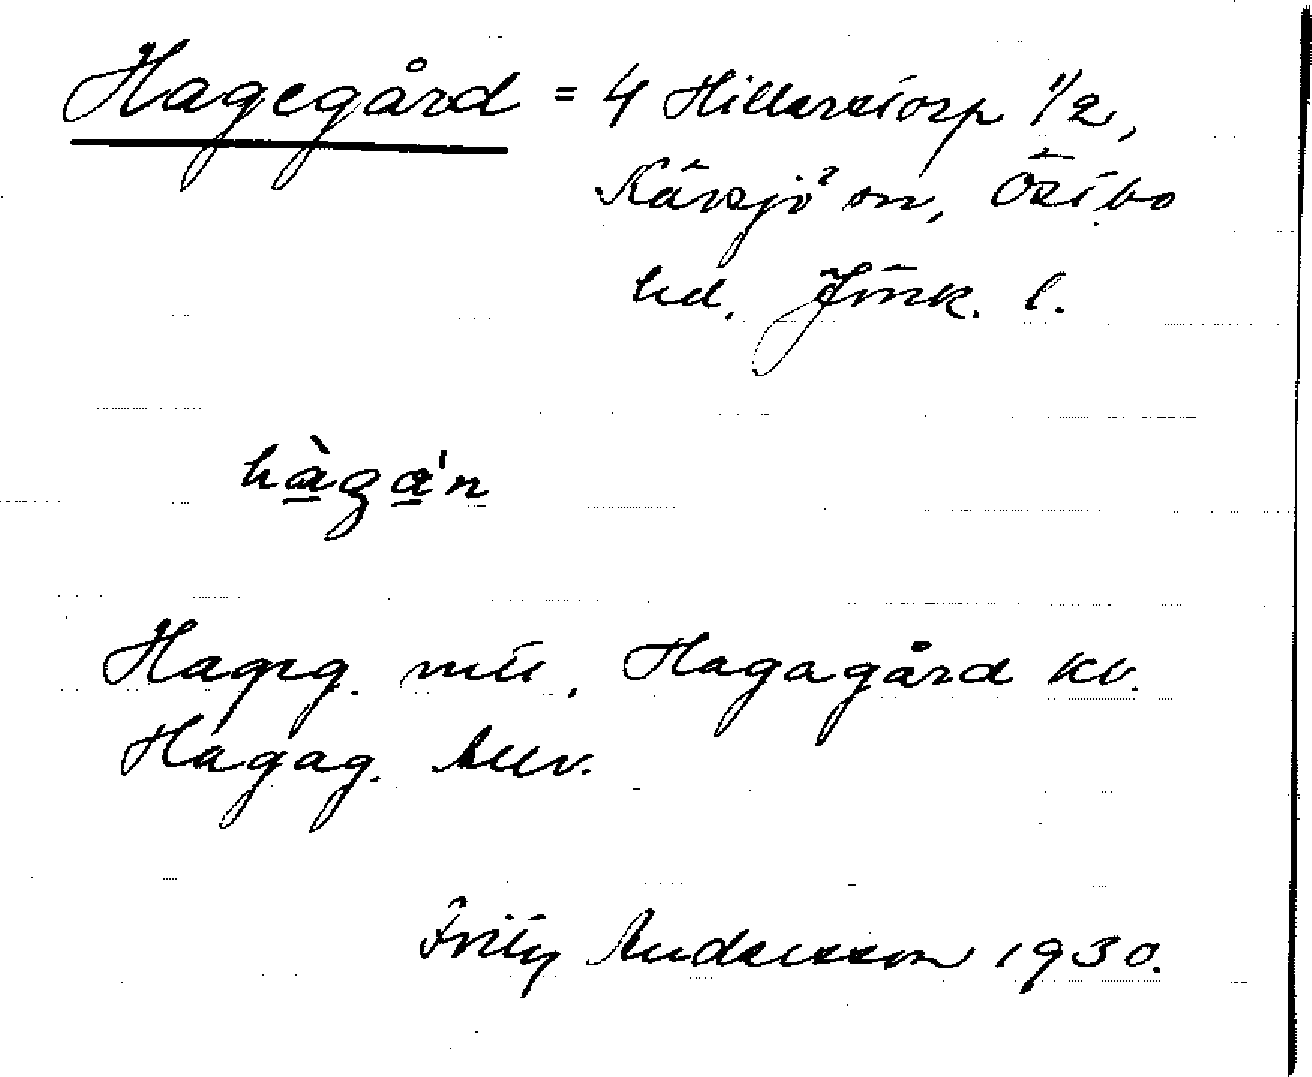 Hagegård = 4 Hillerstorp 1/2,
Kävsjö sn, Östbo
hd. Jönk. l.
hàga'n
Hageg. mtl, Hagagård kv.
Hagag. Allv.
Frity Andersson 1930.